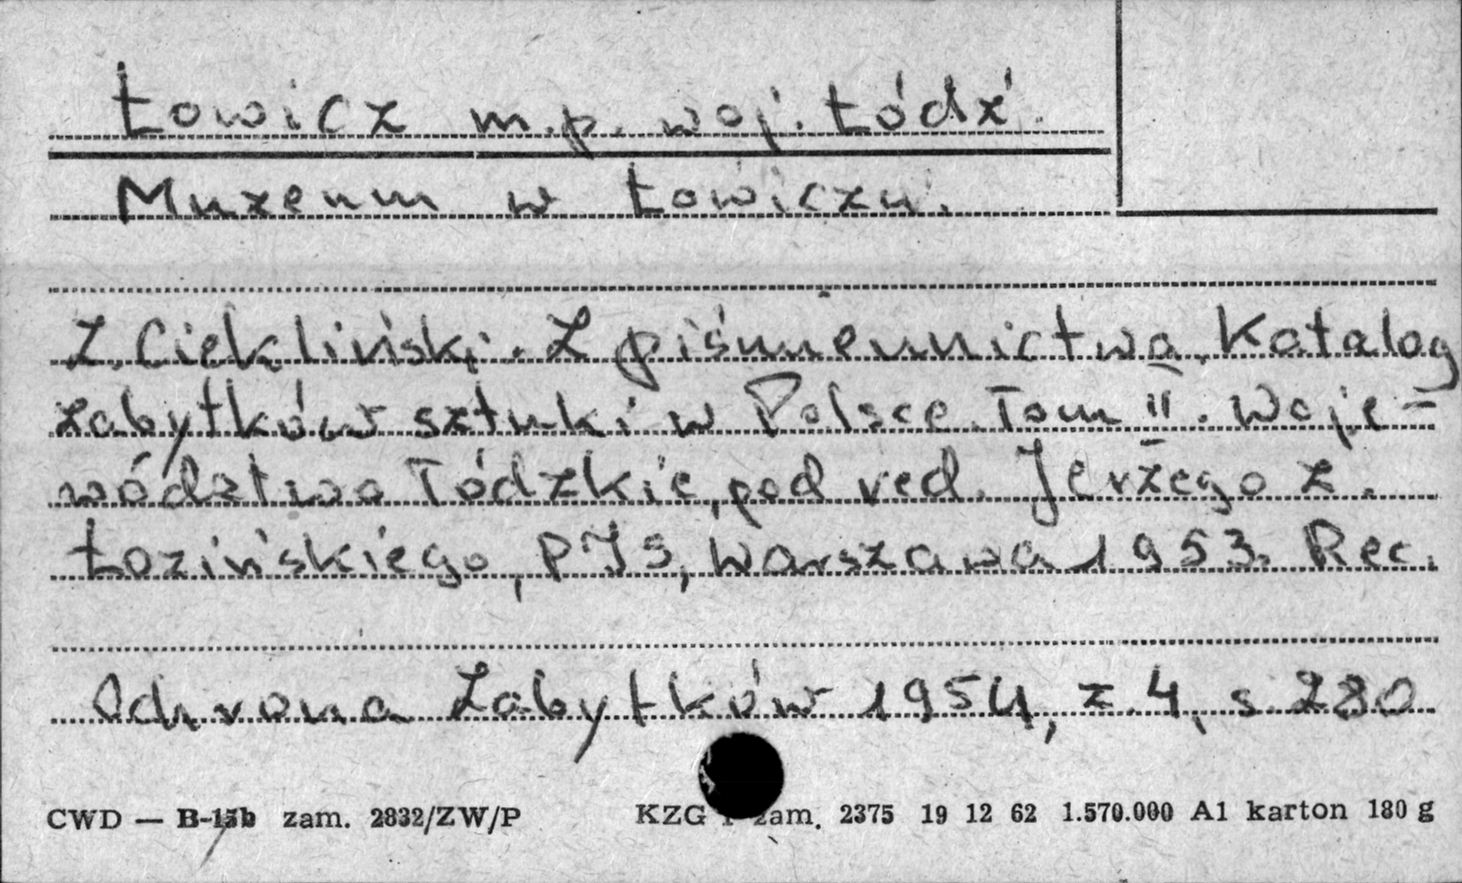 Łowicz m.p. woj. Łódź.
Muzeum w Łowiczu.
Z. Ciekliński. Z piśmiennictwa. Katalog
zabytków sztuki w Polsce. Tom II. Woje=
wództwo Łódzkie, pod red. Jerzego Z.
Łozińskiego, PIS, Warszawa 1953. Rec.
Ochrona Zabytków 1954, z. 4, s 280
CWD — B-15b zam. 2832/ZW/P KZG zam. 2375 19 12 62 1.570.000 A1 karton 180 g